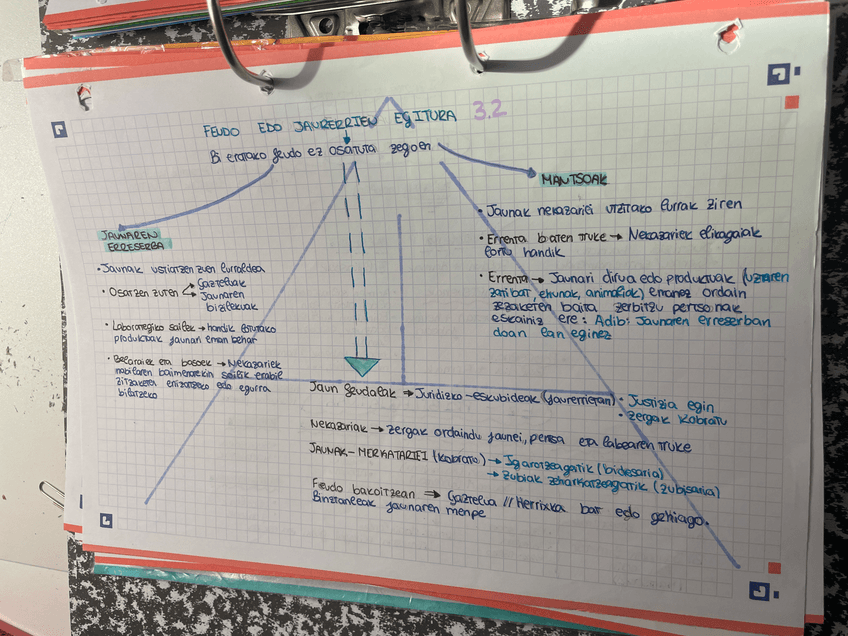 FEUDO EDO JAURERRIEN EGITURA 3.2
Bi eratako feudo ez osatuta zegoen
JAUNAREN
ERRESERBA
• Jaunak ustiatzen zuen lurraldea
• Osatzen zuten
Gazteluak
Jaunaren
bizilekuak
• Laborantzako sailek → handik
produktuak jaunari eman behar
• Belardiek eta basoek → Nekazariek
baimenarekin sailik erabil
zitzaketen edo egurra
bilatzeko
MANTSOAK
• Jaunak nekazariei utzitako lurrak ziren
• Errenta baten truke → Nekazariek elikagaiak
lortu handik
• Errenta → Jaunari dirua edo produktuak (uztaren
zati bat, ehunak, animaliak) emanez ordain
zezaketen baita zerbitzu pertsonak
eskainiz ere: Adib: Jaunaren erreserban
doan lan eginez
Jaun feudalak → Juridizko-eskubideak (jaurerrietan)
• Justizia egin
• Zergak kobratu
Nekazariak → zergak ordaindu jaunei, prensa eta labearen truke
JAUNAK-MERKATARIEI (kobratu) → Igarotzeagatik (bidesaria)
→ zubiak zeharkatzeagatik (zubisaria)
Feudo bakoitzean ⇒ Gaztelua // Herrixka bat edo gehiago.
Biztanleak jaunaren menpe